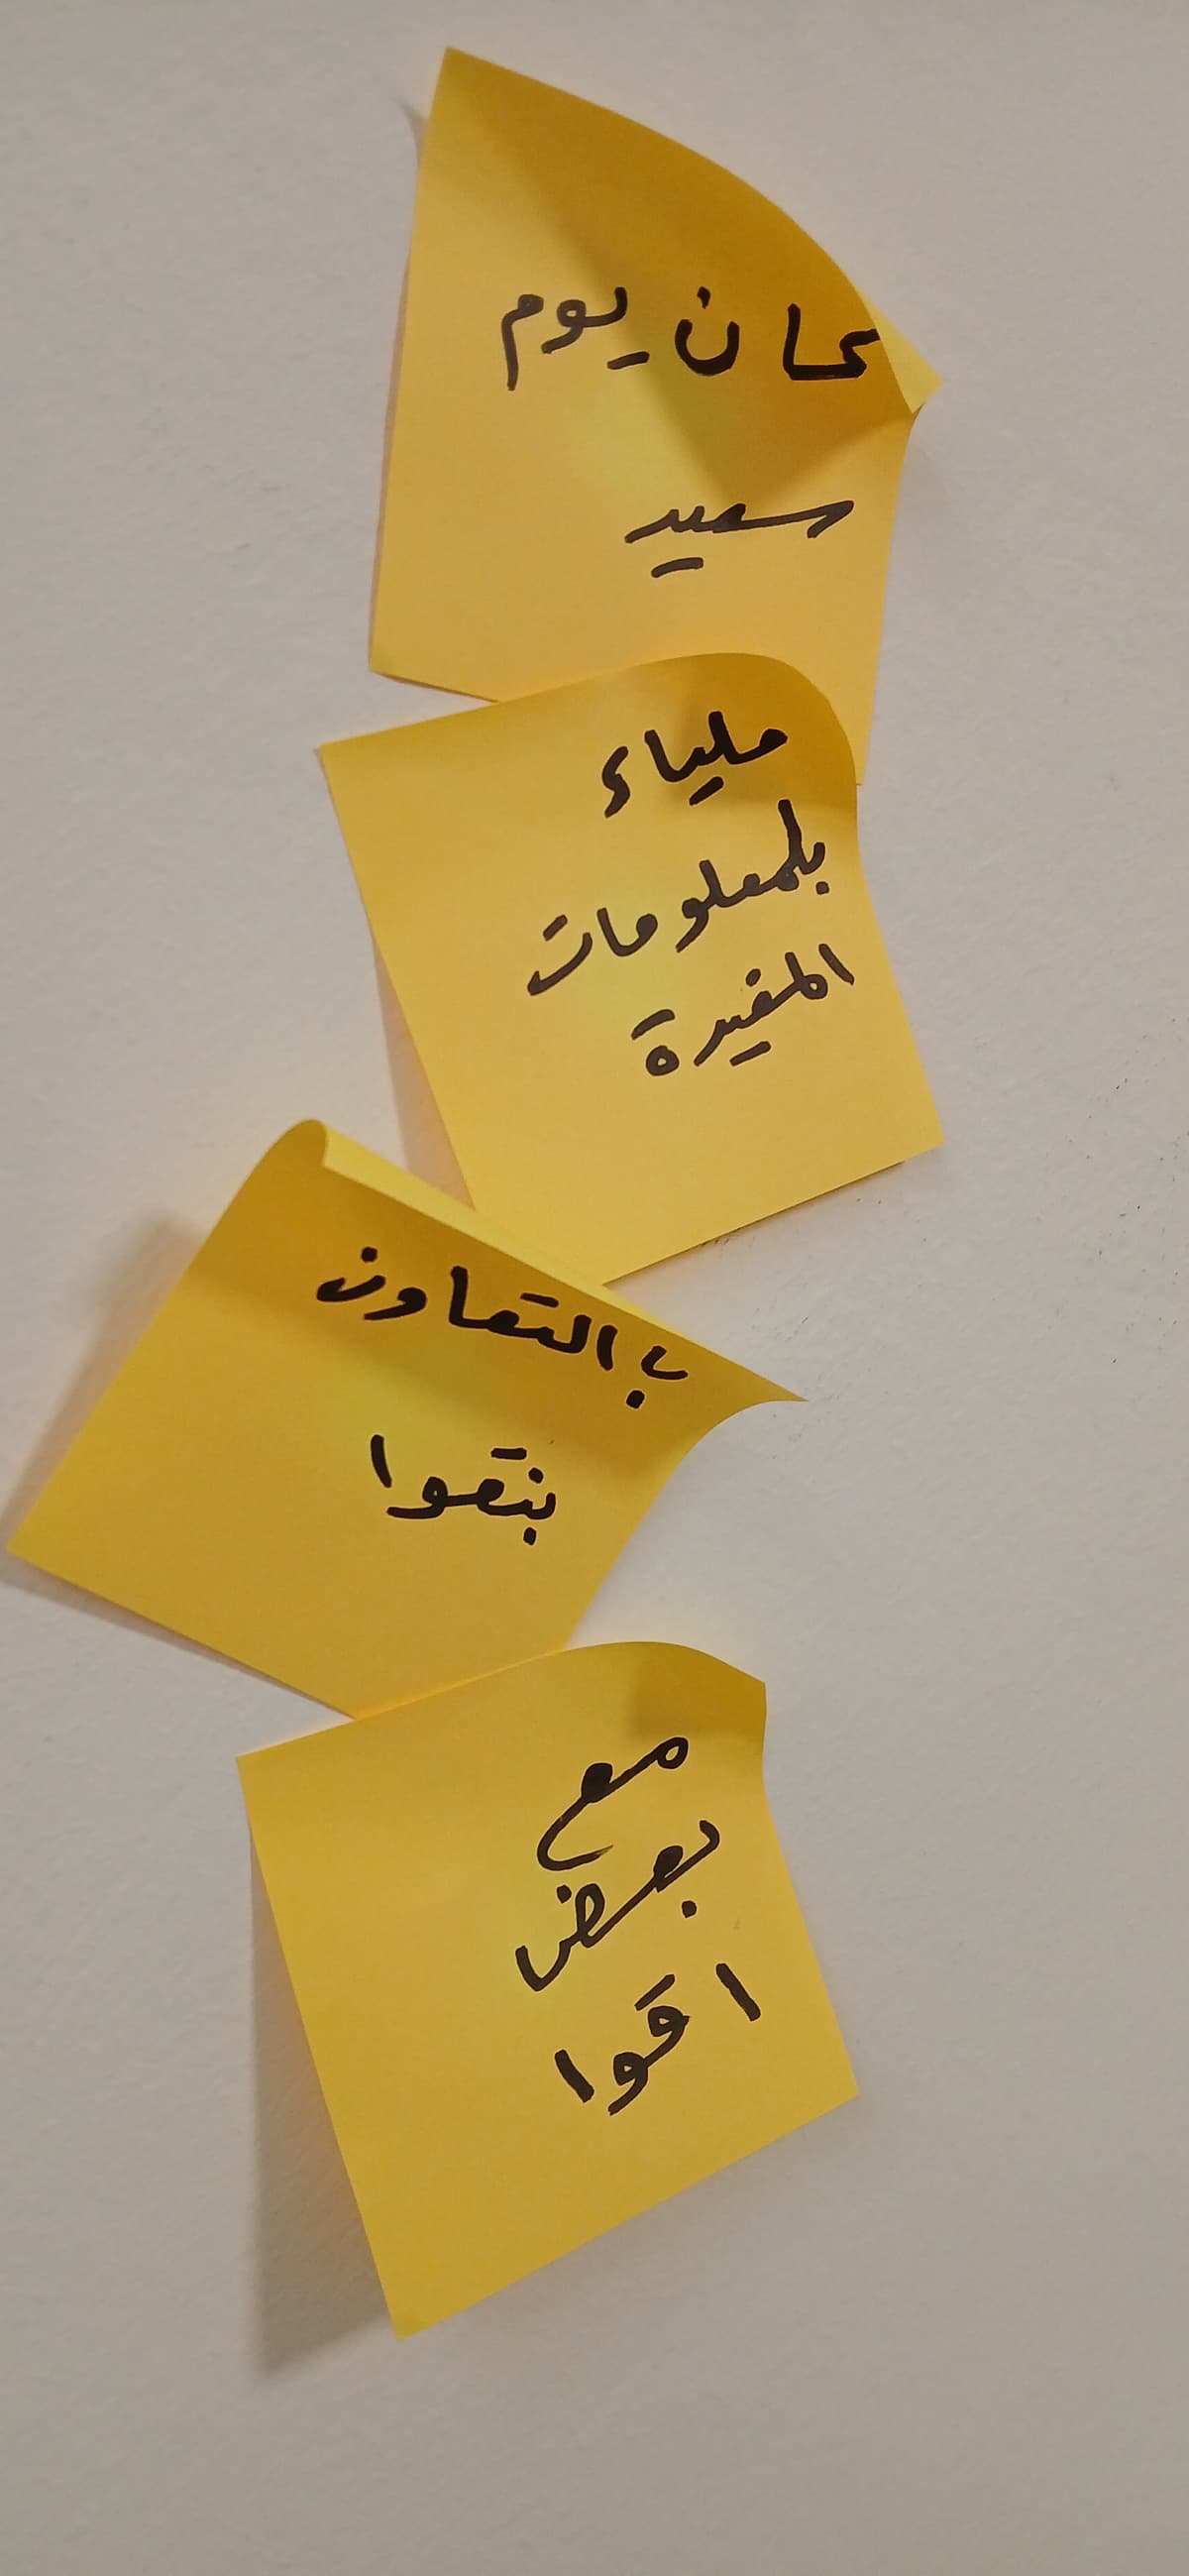 كان يوم
سعيد
ملياء
بلمعلومات
المفيدة
ب التعاون
بنقوا
مع
بعض
اقوا